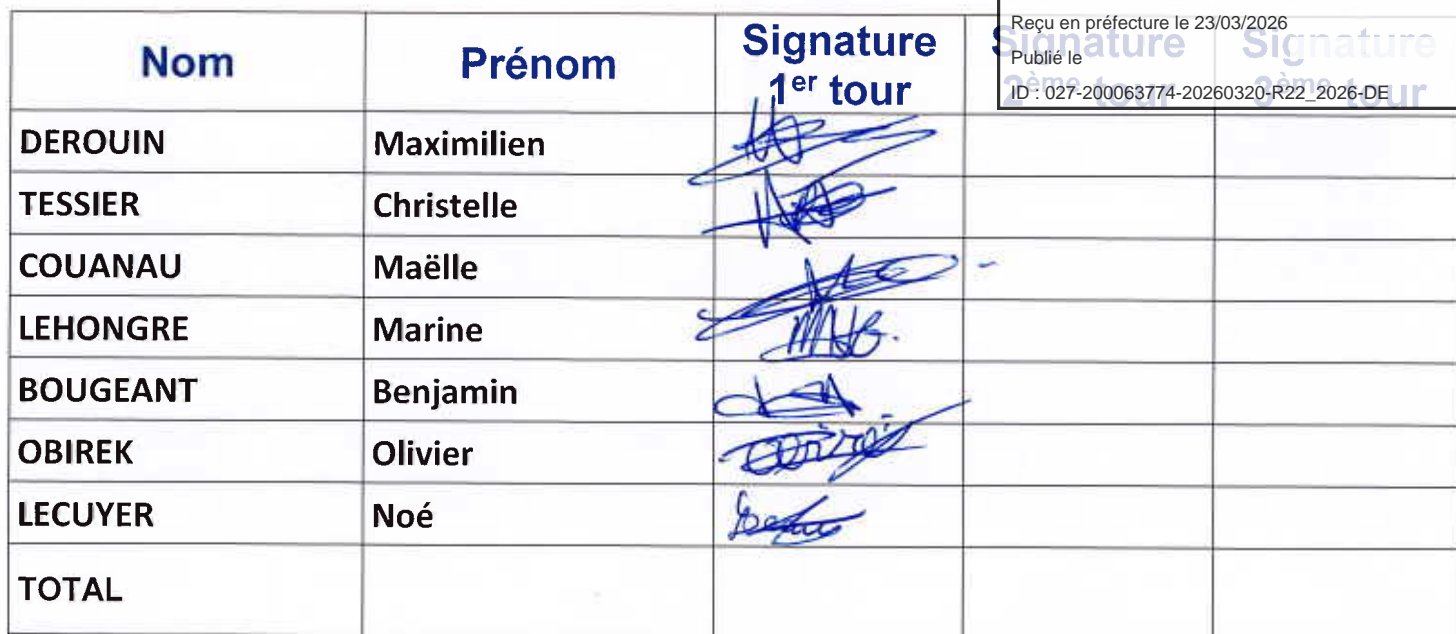 Reçu en préfecture le 23/03/2026
Publié le
ID : 027-200063774-20260320-R22_2026-DE
Nom Prénom Signature 1er tour Signature 2ème tour Signature 3ème tour
DEROUIN Maximilien
TESSIER Christelle
COUANAU Maëlle
LEHONGRE Marine
BOUGEANT Benjamin
OBIREK Olivier
LECUYER Noé
TOTAL